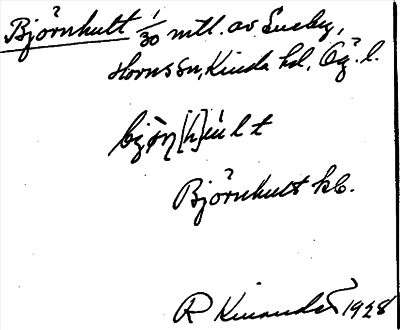 Björnhult 1/30 mtl. av Eneby,
Horns sn, Kinda hd, Ög. l.
bjö̀ɳ[h]ùlt
Björnhult kb.
R Kinander 1928